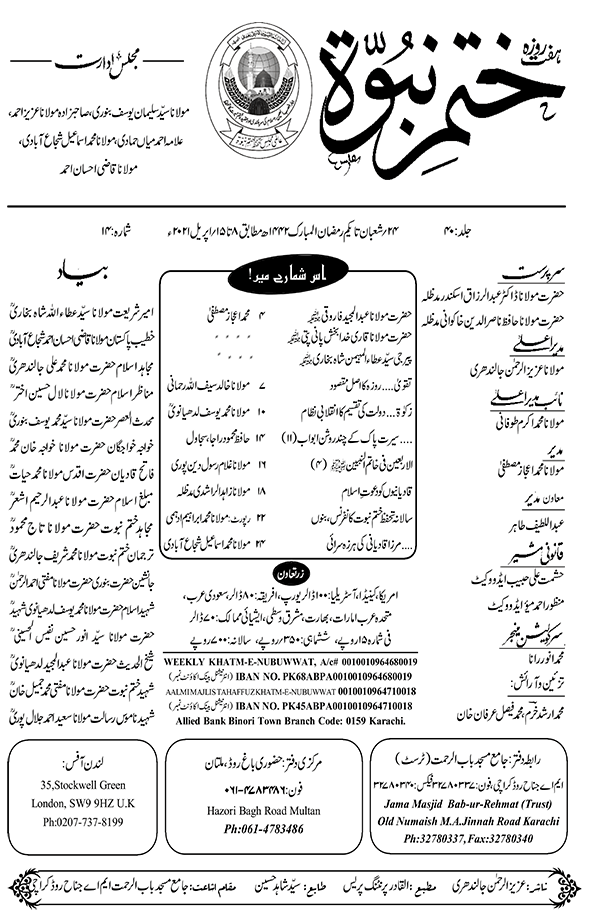 ہفت روزہ
ختم نبوۃ
مجلس ادارت
مولانا سید سلیمان یوسف بنوری، صاحبزادہ مولانا عزیز احمد،
علامہ احمد میاں حمادی، مولانا محمد اسماعیل شجاع آبادی،
مولانا قاضی احسان احمد
جلد: ۴۰
۲۴/شعبان تا یکم رمضان المبارک ۱۴۴۲ھ مطابق ۸ تا ۱۵/اپریل ۲۰۲۱ء
شمارہ: ۱۴
سرپرست
حضرت مولانا ڈاکٹر عبدالرزاق اسکندر مدظلہ
حضرت مولانا حافظ ناصر الدین خاکوانی مدظلہ
مدیر اعلیٰ
مولانا عزیز الرحمٰن جالندھری
نائب مدیر اعلیٰ
مولانا محمد اکرم طوفانی
مدیر
مولانا محمد اعجاز مصطفیٰ
معاون مدیر
عبداللطیف طاہر
قانونی مشیر
حشمت علی حبیب ایڈووکیٹ
منظور احمد میؤ ایڈووکیٹ
سرکولیشن منیجر
محمد انور رانا
تزئین و آرائش:
محمد ارشد خرم، محمد فیصل عرفان خان
اس شمارے میں!
حضرت مولانا عبدالمجید فاروقی ۴ محمد اعجاز مصطفیٰ
حضرت مولانا قاری خدا بخش پانی پتی " " " "
پیر جی سید عطاء المہیمن شاہ بخاری " " " "
تقویٰ.... روزہ کا اصل مقصود ۷ مولانا خالد سیف اللہ رحمانی
زکوٰۃ... دولت کی تقسیم کا انقلابی نظام ۱۰ مولانا محمد یوسف لدھیانوی
.... سیرت پاک کے چند روشن ابواب (۱۱) ۱۴ حافظ محمود راجا، سجاول
الاربعین فی خاتم النبیین ﷺ (۴) ۱۶ مولانا غلام رسول دین پوری
قادیانیوں کو دعوتِ اسلام ۱۸ مولانا زاہد الراشدی مدظلہ
سالانہ تحفظ ختم نبوت کانفرنس، بنوں ۲۲ رپورٹ: مولانا محمد ابراہیم ادہمی
.... مرزا قادیانی کی ہرزہ سرائی ۲۴ مولانا محمد اسماعیل شجاع آبادی
زر تعاون
امریکا، کینیڈا، آسٹریلیا: ۱۰۰ ڈالر یورپ، افریقہ: ۸۰ ڈالر، سعودی عرب،
متحدہ عرب امارات، بھارت، مشرق وسطی، ایشیائی ممالک: ۷۰ ڈالر
فی شمارہ ۱۵ روپے، ششماہی: ۳۵۰ روپے، سالانہ: ۷۰۰ روپے
WEEKLY KHATM-E-NUBUWWAT, A/c# 0010010964680019
IBAN NO. PK68ABPA0010010964680019 (انٹرنیشنل بینک اکاؤنٹ نمبر)
AALMI MAJLIS TAHAFFUZ KHATM-E-NUBUWWAT 0010010964710018
IBAN NO. PK45ABPA0010010964710018 (انٹرنیشنل بینک اکاؤنٹ نمبر)
Allied Bank Binori Town Branch Code: 0159 Karachi.
بیاد
امیر شریعت مولانا سید عطاء اللہ شاہ بخاریؒ
خطیب پاکستان مولانا قاضی احسان احمد شجاع آبادیؒ
مجاہد اسلام حضرت مولانا محمد علی جالندھریؒ
مناظر اسلام حضرت مولانا لال حسین اخترؒ
محدث العصر حضرت مولانا سید محمد یوسف بنوریؒ
خواجہ خواجگان حضرت مولانا خواجہ خان محمدؒ
فاتح قادیان حضرت اقدس مولانا محمد حیاتؒ
مبلغ اسلام حضرت مولانا عبدالرحیم اشعرؒ
مجاہد ختم نبوت حضرت مولانا تاج محمودؒ
ترجمان ختم نبوت مولانا محمد شریف جالندھریؒ
جانشین حضرت بنوری حضرت مولانا مفتی احمد الرحمٰنؒ
شہید اسلام حضرت مولانا محمد یوسف لدھیانوی شہیدؒ
حضرت مولانا سید انور حسین نفیس الحسینیؒ
شیخ الحدیث حضرت مولانا عبدالمجید لدھیانویؒ
شہید ختم نبوت حضرت مولانا مفتی محمد جمیل خانؒ
شہید ناموس رسالت مولانا سعید احمد جلال پوریؒ
رابطہ دفتر: جامع مسجد باب الرحمت (ٹرسٹ)
ایم اے جناح روڈ کراچی، فون: ۳۲۷۸۰۳۳۷ فیکس: ۳۲۷۸۰۳۴۰
Jama Masjid Bab-ur-Rehmat (Trust)
Old Numaish M.A.Jinnah Road Karachi
Ph:32780337, Fax:32780340
مرکزی دفتر: حضوری باغ روڈ، ملتان
فون: ۰۶۱-۴۷۸۳۴۸۶
Hazori Bagh Road Multan
Ph:061-4783486
لندن آفس:
35,Stockwell Green
London, SW9 9HZ U.K
Ph:0207-737-8199
ناشر: عزیز الرحمٰن جالندھری مطبع: القادر پرنٹنگ پریس طابع: سید شاہد حسین مقام اشاعت: جامع مسجد باب الرحمت ایم اے جناح روڈ کراچی